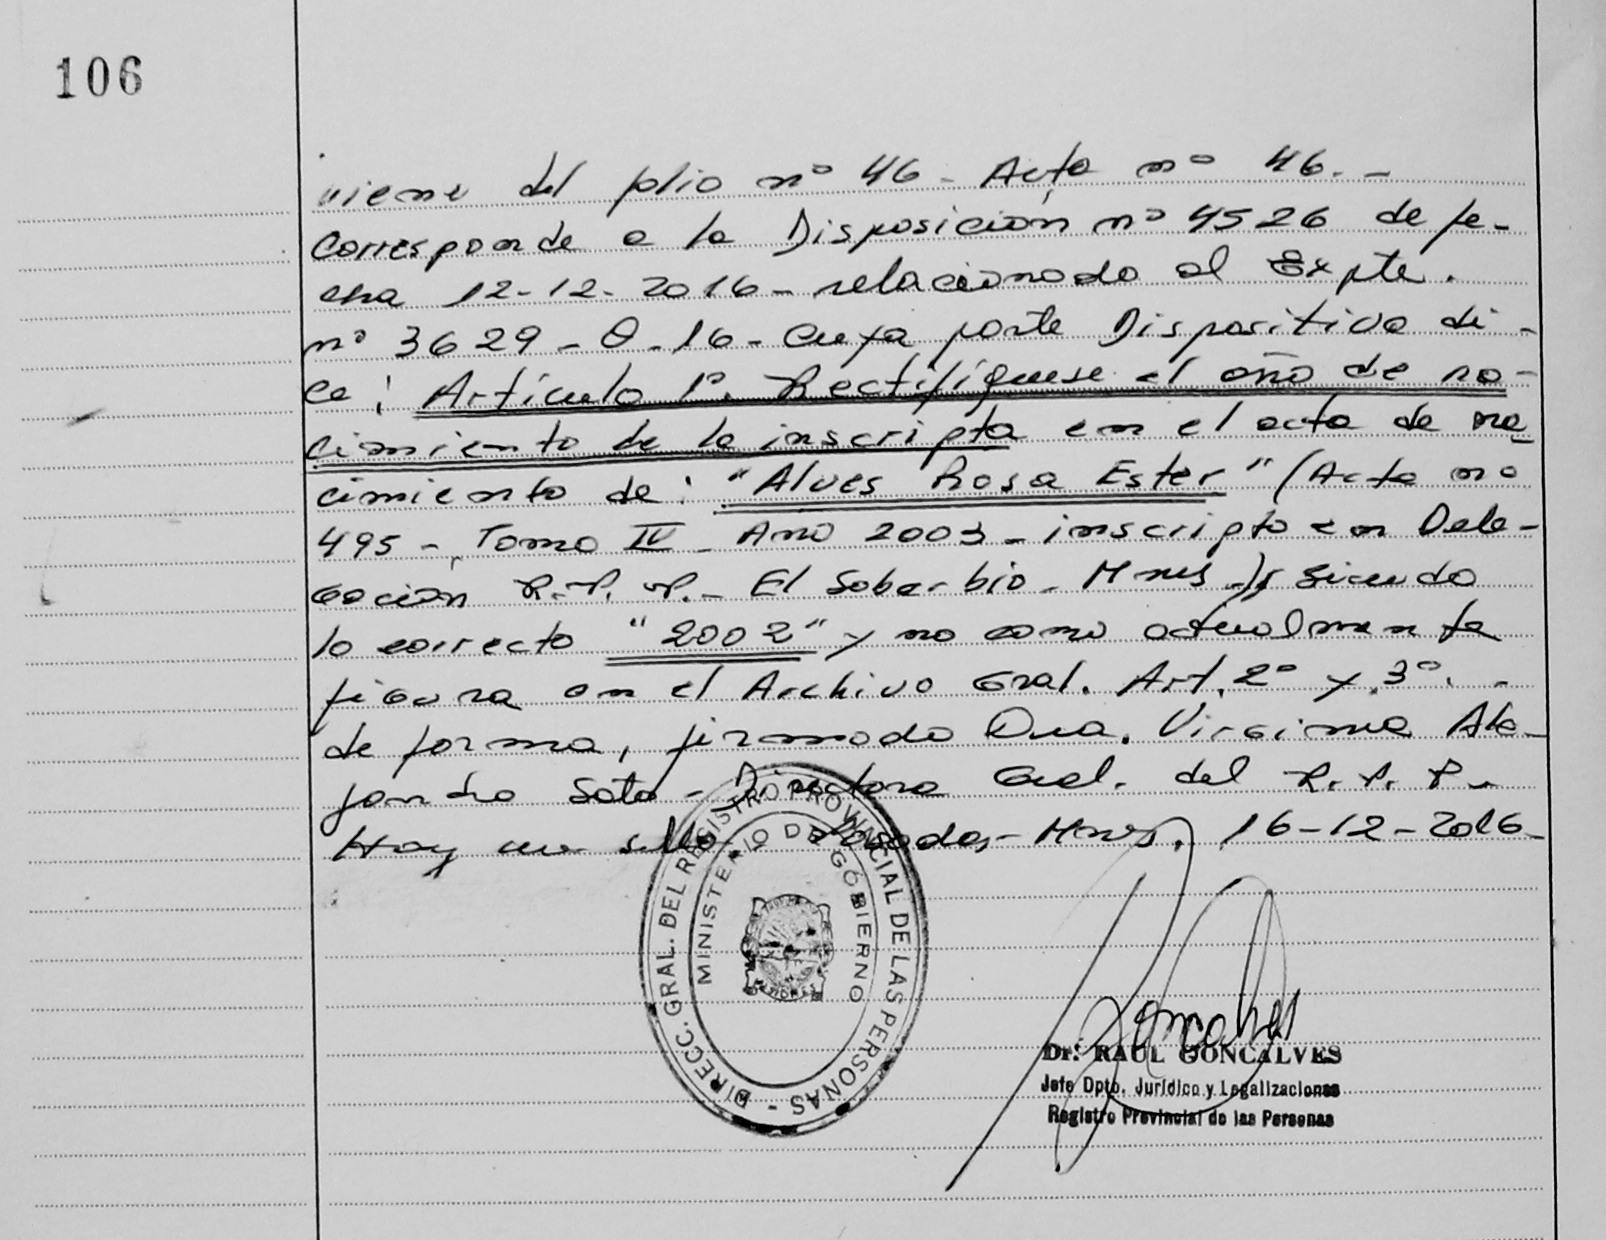 106
viene del folio nº 46 - Acta nº 46. -
Corresponde a la Disposición nº 4526 de fe-
cha 12-12-2016 - relacionado al Expte.
nº 3629 - O - 16 - Cuya parte Dispositiva di-
ce: Artículo 1º. Rectifíquese el año de na-
cimiento de la inscripta en el acta de na-
cimiento de: "Alves Rosa Ester" (Acta nº
495 - Tomo IV - Año 2003 - inscripto en Dele-
gación R.P.P. - El Soberbio - Mnes.); siendo
lo correcto "2002" y no como actualmente
figura en el Archivo Gral. Art. 2º y 3º. -
de forma, firmado Dra. Virginia Ale-
jandra Soto - Directora Gral. del R.P.P. -
Hay un sello. Posadas - Mnes. 16-12-2016-
DIRECC. GRAL. DEL REGISTRO PROVINCIAL DE LAS PERSONAS -
MINISTERIO DE GOBIERNO
MISIONES
Dr. RAUL GONCALVES
Jefe Dpto. Jurídico y Legalizaciones
Registro Provincial de las Personas